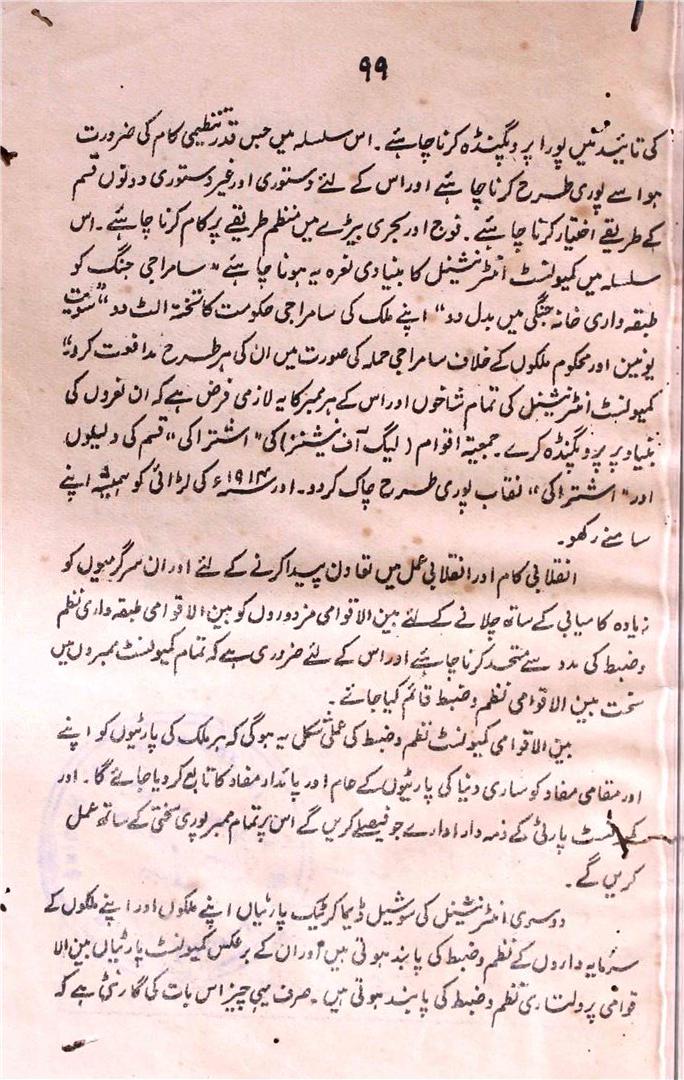 ۹۹
کی تائید میں پورا پروپگنڈہ کرنا چاہئے۔ اس سلسلہ میں جس قدر تنظیمی کام کی ضرورت
ہو اسے پوری طرح کرنا چاہئے اور اس کے لئے دستوری اور غیر دستوری دونوں قسم
کے طریقے اختیار کرنا چاہئے۔ فوج اور بحری بیڑے میں منظم طریقے پر کام کرنا چاہئے۔ اس
سلسلہ میں کمیونسٹ انٹرنیشنل کا بنیادی نعرہ یہ ہونا چاہئے "سامراجی جنگ کو
طبقہ داری خانہ جنگی میں بدل دو" اپنے ملک کی سامراجی حکومت کا تختہ الٹ دو" "سویت
یونین اور محکوم ملکوں کے خلاف سامراجی حملہ کی صورت میں ان کی ہر طرح مدافعت کرو"
کمیونسٹ انٹرنیشنل کی تمام شاخوں اور اس کے ہر ممبر کا یہ لازمی فرض ہے کہ ان نعروں کی
بنیاد پر پروپگنڈہ کرے۔ جمعیۃ اقوام (لیگ آف نیشنز) کی "اشتراکی" قسم کی دلیلوں
اور "اشتراکی" نقاب پوری طرح چاک کردو۔ اور ۱۹۱۴ء کی لڑائی کو ہمیشہ اپنے
سامنے رکھو۔
انقلابی کام اور انقلابی عمل میں تعاون پیدا کرنے کے لئے اور ان سرگرمیوں کو
زیادہ کامیابی کے ساتھ چلانے کے لئے بین الاقوامی مزدوروں کو بین الاقوامی طبقہ داری نظم
و ضبط کی مدد سے متحد کرنا چاہئے اور اس کے لئے ضروری ہے کہ تمام کمیونسٹ ممبروں میں
سخت بین الاقوامی نظم و ضبط قائم کیا جائے۔
بین الاقوامی کمیونسٹ نظم و ضبط کی عملی شکل یہ ہوگی کہ ہر ملک کی پارٹیوں کو اپنے
اور مقامی مفاد کو ساری دنیا کی پارٹیوں کے عام اور پائدار مفاد کا تابع کر دیا جائے گا۔ اور
کمیونسٹ پارٹی کے ذمہ دار ادارے جو فیصلے کریں گے اس پر تمام ممبر پوری سختی کے ساتھ عمل
کریں گے۔
دوسری انٹرنیشنل کی سوشیل ڈیماکرٹیک پارٹیاں اپنے ملکوں اور اپنے ملکوں کے
سرمایہ داروں کے نظم و ضبط کی پابند ہوتی ہیں اور ان کے برعکس کمیونسٹ پارٹیاں بین الا
قوامی پرولتاری نظم و ضبط کی پابند ہوتی ہیں۔ صرف یہی چیز اس بات کی گارنٹی ہے کہ